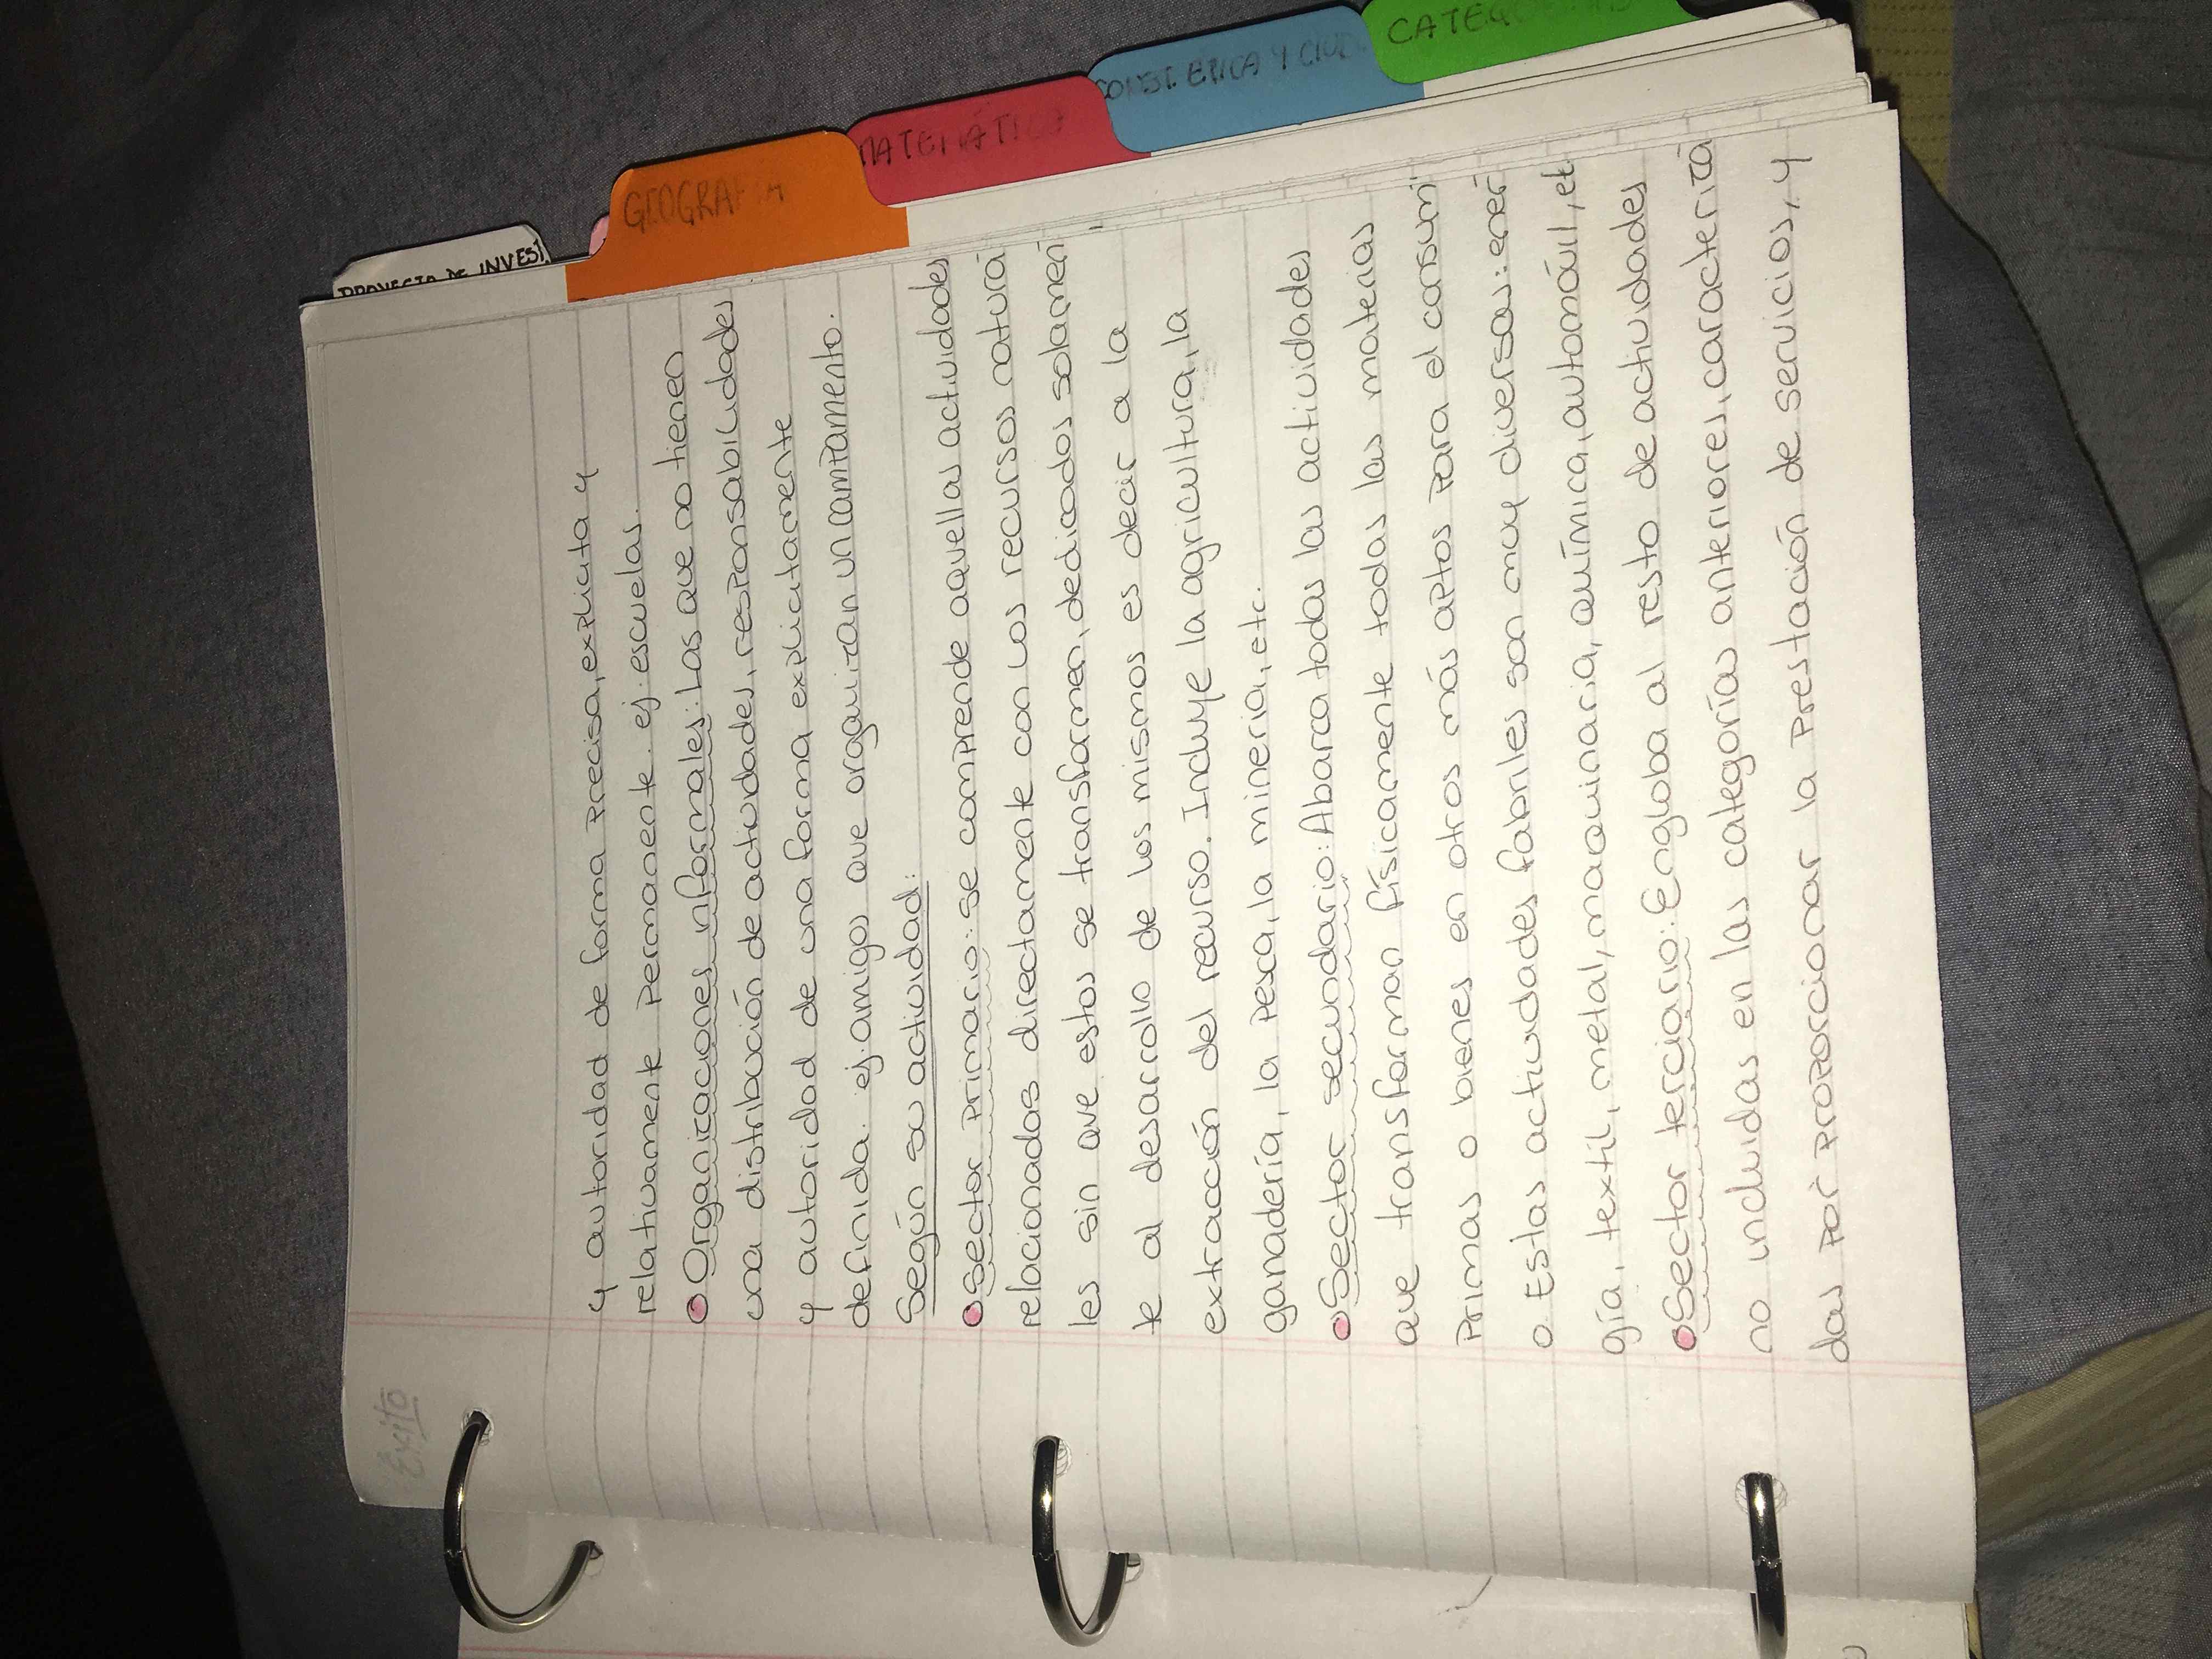 PROYECTO DE INVEST.
GEOGRAFIA
MATEMÁTICA
CONST. Y
Éxito
y autoridad de forma precisa, explicita y
relativamente permanente. ej. escuelas.
Organizaciones informales: Las que no tienen
una distribución de actividades, responsabilidades
y autoridad de una forma explicitamente
definida. ej. amigos que organizan un campamento.
Según su actividad:
Sector primario: se comprende aquellas actividades
relacionadas directamente con los recursos natura
les sin que estos se transformen, dedicados solamen
te al desarrollo de los mismos es decir a la
extracción del recurso. Incluye la agricultura, la
ganadería, la pesca, la mineria, etc.
Sector secundario: Abarca todas las actividades
que transforman físicamente todas las materias
primas o bienes en otros más aptos para el consum
o Estas actividades fabriles son muy diversas: ener
gía, textil, metal, maquinaria, química, automóvil, et
Sector terciario: Engloba al resto de actividades
no incluidas en las categorías anteriores, caracteriza
das por proporcionar la prestación de servicios, y